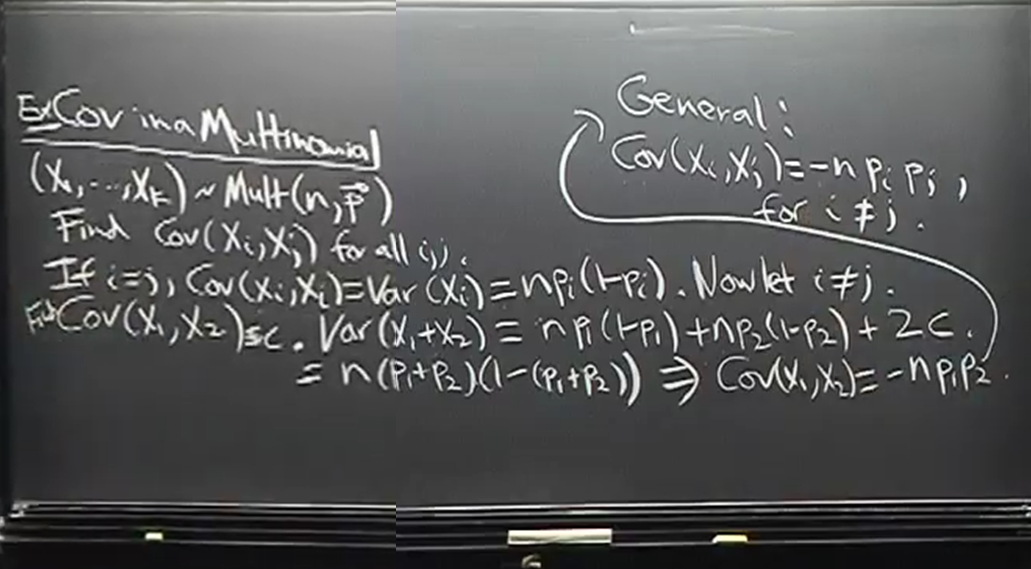 Ex Cov in a Multinomial
(X₁, ..., Xₖ) ~ Mult(n, p⃗)
Find Cov(Xᵢ, Xⱼ) for all i, j.
If i=j, Cov(Xᵢ, Xᵢ) = Var(Xᵢ) = npᵢ(1-pᵢ). Now let i ≠ j.
Find Cov(X₁, X₂) = c. Var(X₁+X₂) = np₁(1-p₁) + np₂(1-p₂) + 2c.
= n(p₁+p₂)(1-(p₁+p₂)) ⇒ Cov(X₁, X₂) = -np₁p₂.
General:
Cov(Xᵢ, Xⱼ) = -n pᵢ pⱼ,
for i ≠ j.